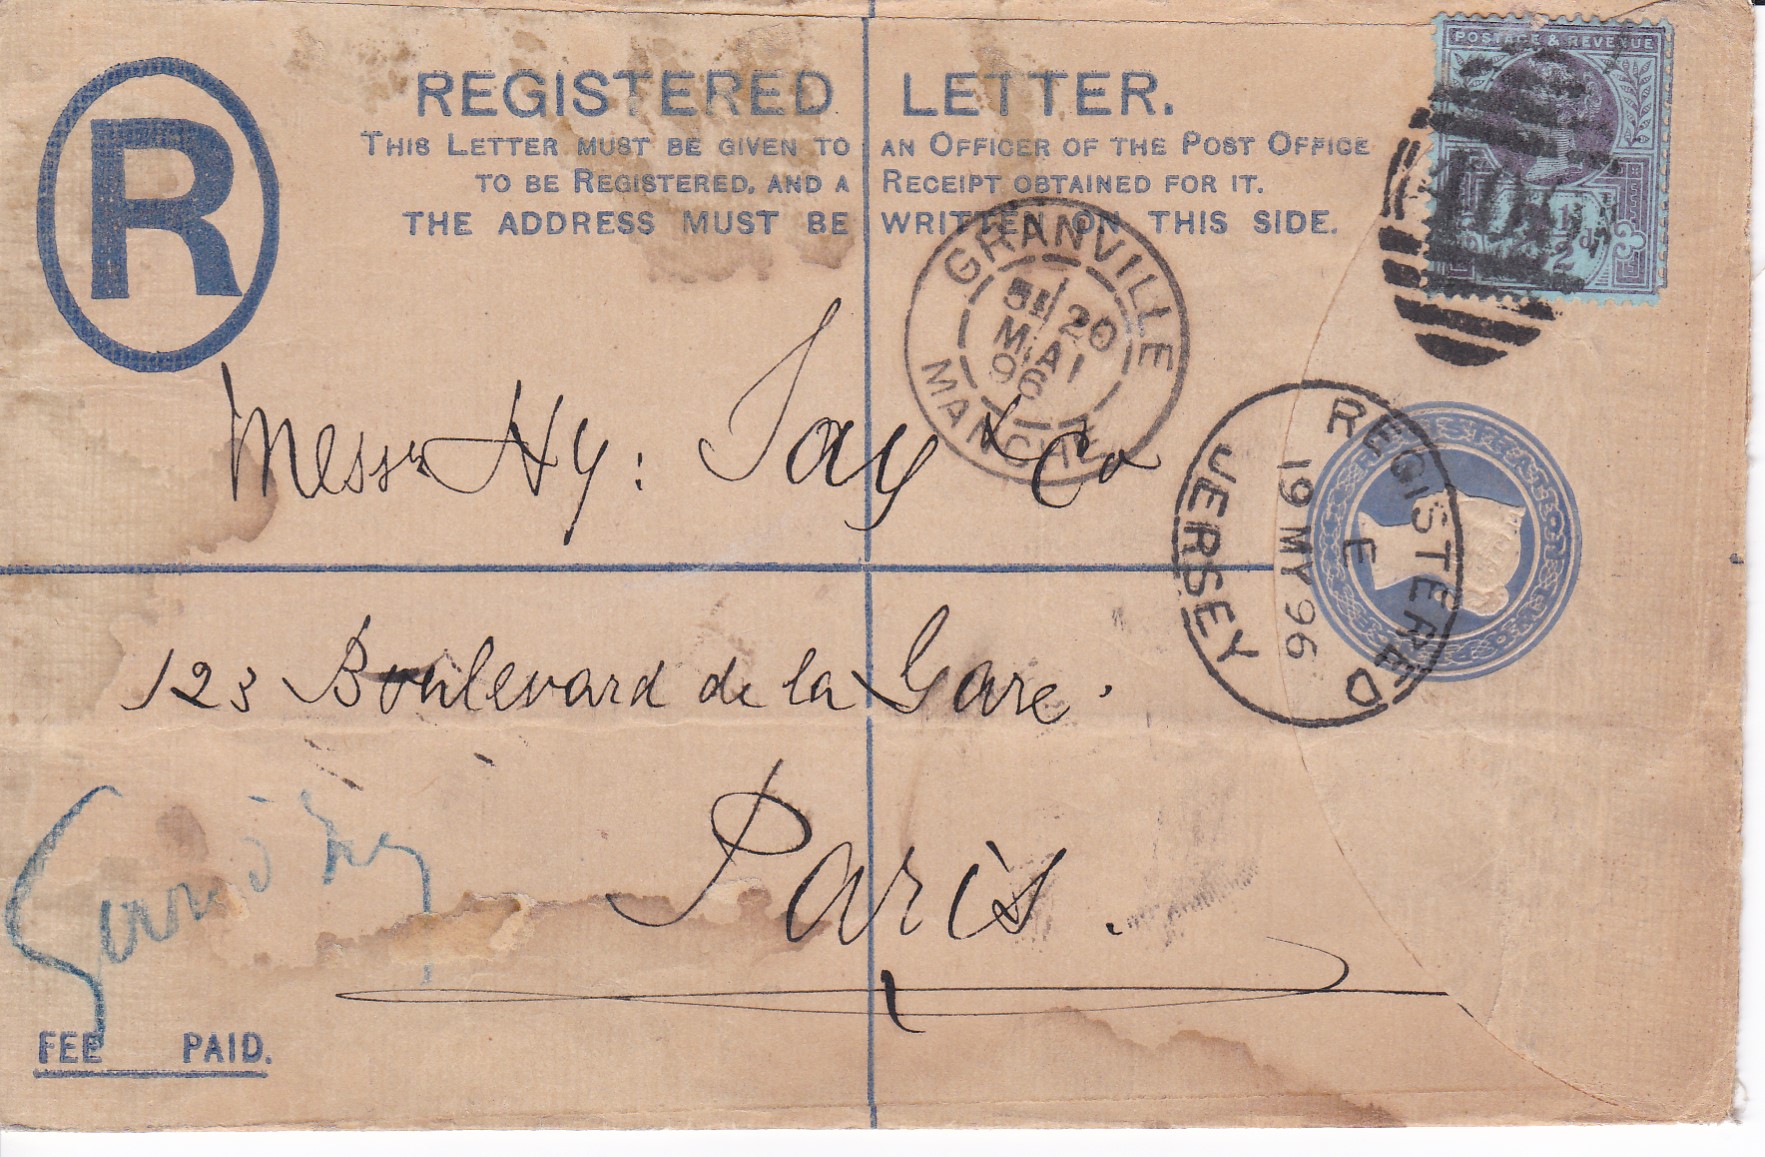 R
REGISTERED LETTER.
THIS LETTER MUST BE GIVEN TO AN OFFICER OF THE POST OFFICE
TO BE REGISTERED, AND A RECEIPT OBTAINED FOR IT.
THE ADDRESS MUST BE WRITTEN ON THIS SIDE.
POSTAGE & REVENUE
GRANVILLE
20
MAI
96
MANCHE
REGISTERED
E
19 MY 96
JERSEY
Messrs Hy: Jay & Co
123 Boulevard de la Gare.
Paris.
FEE PAID.